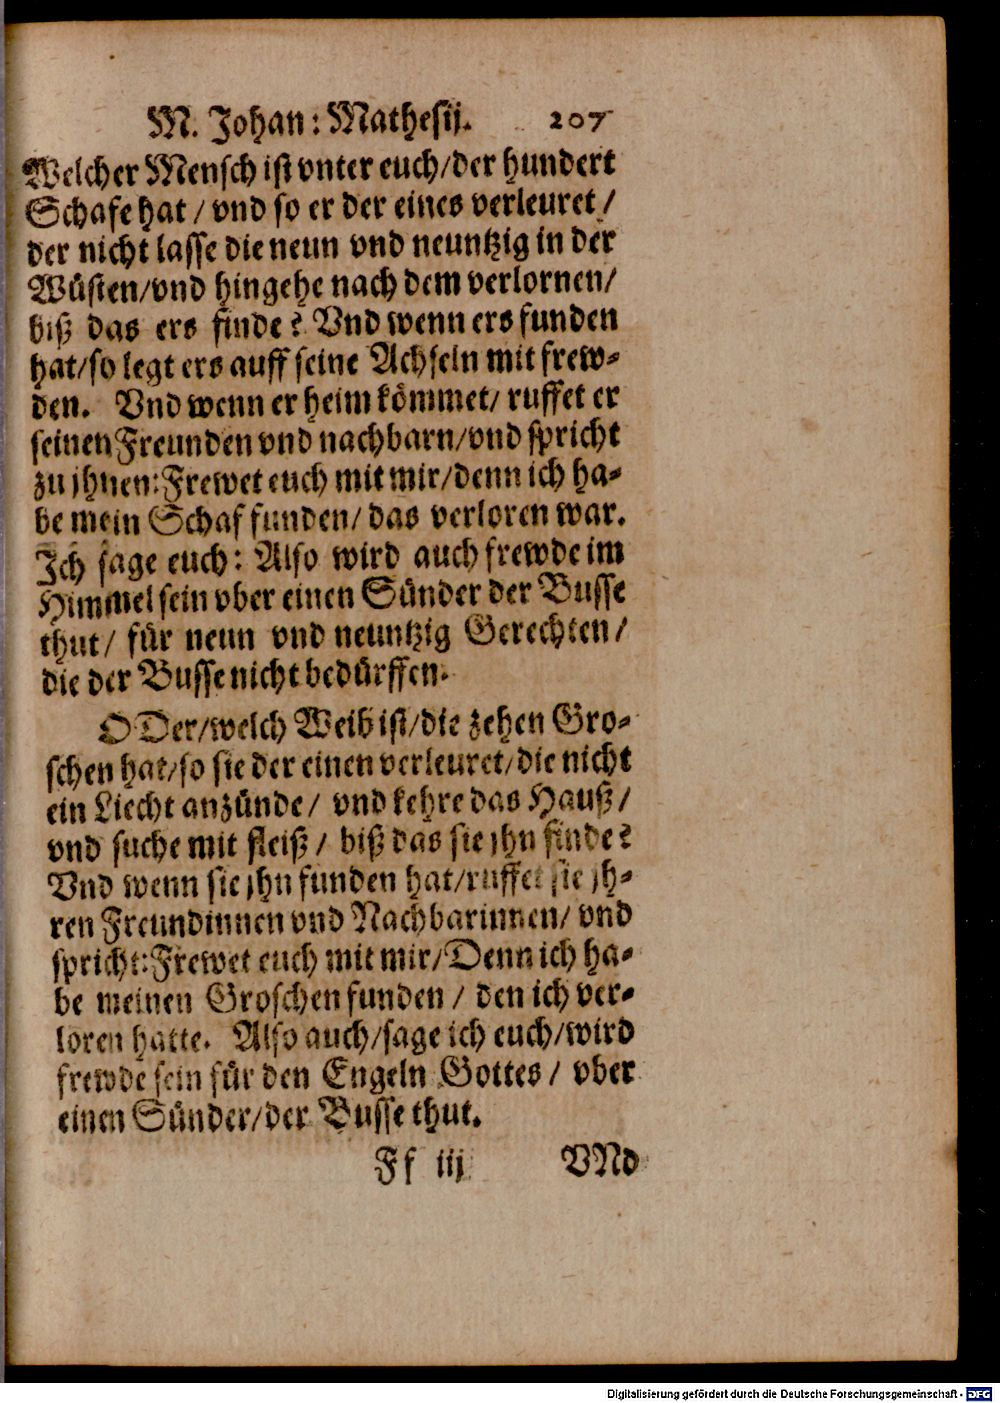 M. Johan: Mathesij. 207
Welcher Mensch ist vnter euch/der hundert
Schafe hat / vnd so er der eines verleuret /
der nicht lasse die neun vnd neuntzig in der
Wüsten/vnd hingehe nach dem verlornen/
biß das ers finde? Vnd wenn ers funden
hat/so legt ers auff seine Achseln mit frew-
den. Vnd wenn er heim kömmet/ ruffet er
seinen Freunden vnd nachbarn/vnd spricht
zu jhnen: Frewet euch mit mir/denn ich ha-
be mein Schaf funden/ das verloren war.
Ich sage euch: Also wird auch frewde im
Himmel sein vber einen Sünder der Busse
thut/ für neun vnd neuntzig Gerechten/
die der Busse nicht bedürffen.
ODer/welch Weib ist/die zehen Gro-
schen hat/so sie der einen verleuret/die nicht
ein Liecht anzünde/ vnd kehre das Hauß/
vnd suche mit fleiß / biß das sie jhn finde?
Vnd wenn sie jhn funden hat/ruffet sie jh-
ren Freundinnen vnd Nachbarinnen/ vnd
spricht: Frewet euch mit mir/Denn ich ha-
be meinen Groschen funden / den ich ver-
loren hatte. Also auch/sage ich euch/wird
frewde sein für den Engeln Gottes / vber
einen Sünder/der Busse thut.
Ff iij VNd
Digitalisierung gefördert durch die Deutsche Forschungsgemeinschaft - DFG